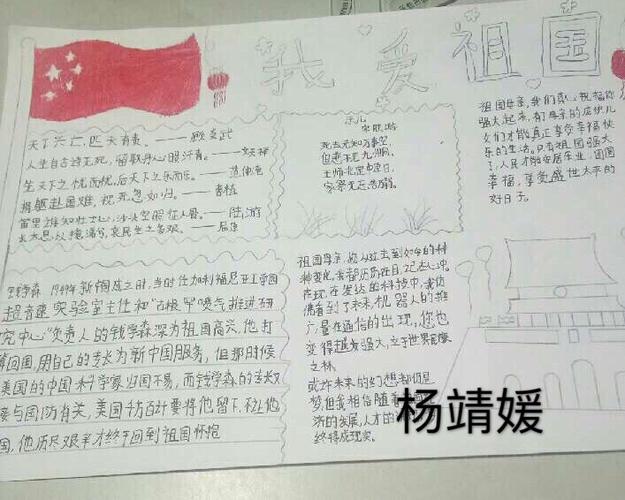 我爱祖国
天下兴亡,匹夫有责。——顾炎武
人生自古谁无死,留取丹心照汗青。——文天祥
先天下之忧而忧,后天下之乐而乐。——范仲淹
捐躯赴国难,视死忽如归。——曹植
一陆游
长太息以掩涕兮,哀民生之多艰。——屈原
示儿
宋 陆游
死去元知万事空,
但悲不见九州同。
王师北定中原日,
家祭无忘告翁。
祖国母亲,我们衷心祝福你
强大起来,有了母亲的庇护儿
女们才能真正享受幸福快
乐的生活。只有祖国强大
了,人民才能安居乐业,团团
幸福,享受盛世太平的
好日子。
钱学森 1949年新中国成立时,当时任加利福尼亚工学院
超音速实验室主任和"古根罕"喷气推进研
究中心"负责人的钱学森深为祖国高兴,他打
算回国,用自己的专长为新中国服务,但那时候
美国的中国科学家归国不易,而钱学森的专长又
接与国防有关,美国千方百计要将他留下,不让他
国,他历尽艰辛才终于回到祖国怀抱
祖国母亲,您从过去到如今的种
种变化,我都历历在目,记在心中
在现在发达的科技中,我仿
佛看到了未来,机器人的推
广,量在通信的出现,您也
变得越发强大,立于世界民族
之林
或许未来的幻想都仍是
梦,但我相信随着
济的发展,人才的
终将成现实。
杨靖媛